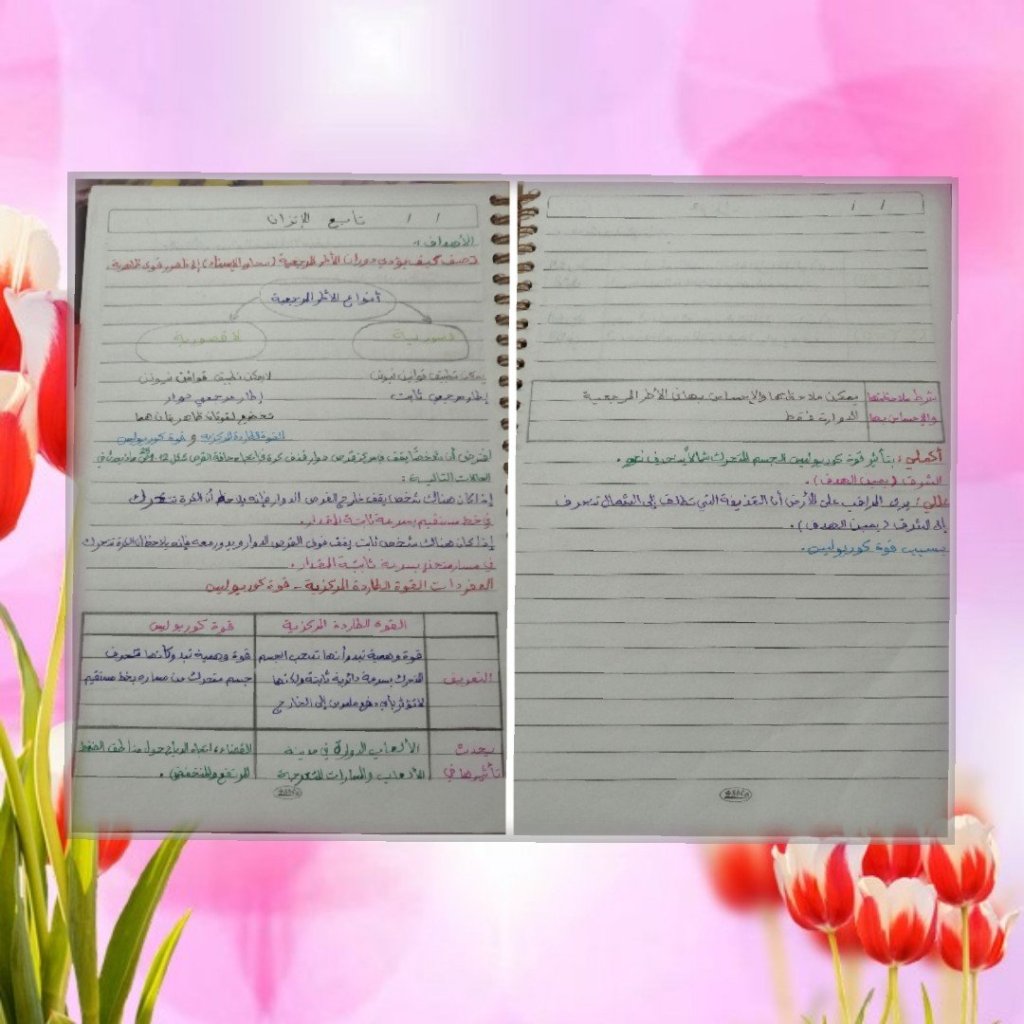 / / تابع الإتزان
الأهداف :
تصف كيف يؤدي دوران الأطر المرجعية إلى ظهور قوى ظاهرية
أنواع الأطر المرجعية
قصورية
لا قصورية
يمكن تطبيق قوانين نيوتن
لا يمكن تطبيق قوانين نيوتن
إطار مرجعي ثابت
إطار مرجعي دوار
تخضع لقوتان ظاهريتان هما
القوة الطاردة المركزية و قوة كوريوليس
أفترض أن شخصا يقف في مركز قرص دوار قذف كرة في اتجاه حافة القرص في
الحالات التالية :
إذا كان هناك شخص يقف خارج القرص الدوار فإنه يلاحظ أن الكرة تتحرك
في خط مستقيم بسرعة ثابتة المقدار .
إذا كان هناك شخص ثابت يقف فوق القرص الدوار ويدور معه فإنه يلاحظ أن الكرة تتحرك
في مسار منحني بسرعة ثابتة المقدار .
المفردات القوة الطاردة المركزية - قوة كوريوليس
القوة الطاردة المركزية
قوة كوريوليس
التعريف
قوة وهمية تبدو أنها تسحب الجسم
المتحرك بسرعة دائرية ثابتة ولكنها
لا تؤثر بأي دفع ملموس إلى الخارج
قوة وهمية تبدو كأنها تحرف
جسم متحرك من مساره بخط مستقيم
يحدث
تأثيرها في
الألعاب الدوارة في مدينة
الألعاب والمسارات المتعرجة
الفضاء ، اتجاه الرياح حول مناطق الضغط
المرتفع والمنخفض .
/ /
شرط ملاحظتها
والإحساس بها
يمكن ملاحظتها والإحساس بها في الأطر المرجعية
الدوارة فقط
أكملي : بتأثير قوة كوريوليس الجسم المتحرك شمالاً ينحرف نحو
الشرق ( يمين الهدف ) .
عللي : يرى المراقب على الأرض أن القذيفة التي تنطلق إلى الشمال تنحرف
إلى الشرق ( يمين الهدف ) .
بسبب قوة كوريوليس .